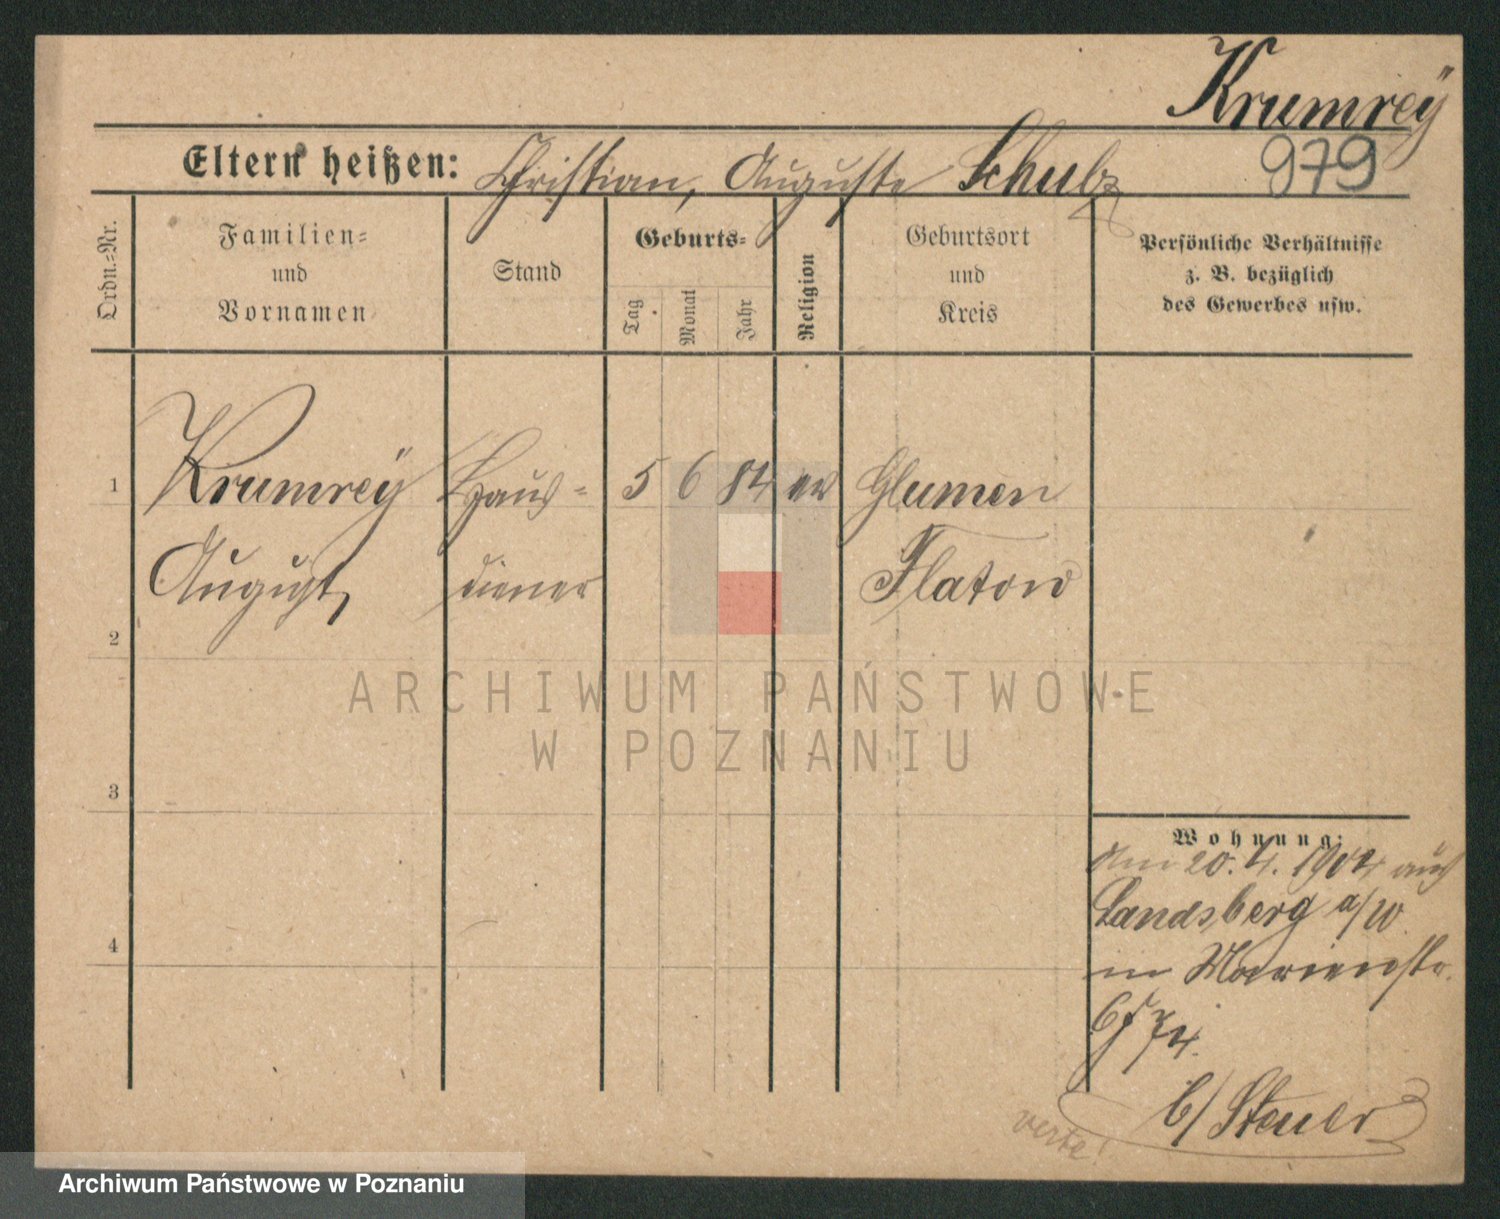 Krumreÿ
979
Eltern heißen: Christian, Auguste Schulz
Ordn.-Nr.
Familien-
und
Vornamen
Stand
Geburts-
Tag
Monat
Jahr
Religion
Geburtsort
und
Kreis
Persönliche Verhältnisse
z. B. bezüglich
des Gewerbes usw.
1 Krumreÿ Haus- 5 6 84 ev Glumen
August, diener Flatow
2
ARCHIWUM PAŃSTWOWE
W POZNANIU
3
Wohnung:
Am 20.4.1904 aus
Landsberg a/W.
in Marienstr.
4
b/ Steuer
verte!
Archiwum Państwowe w Poznaniu